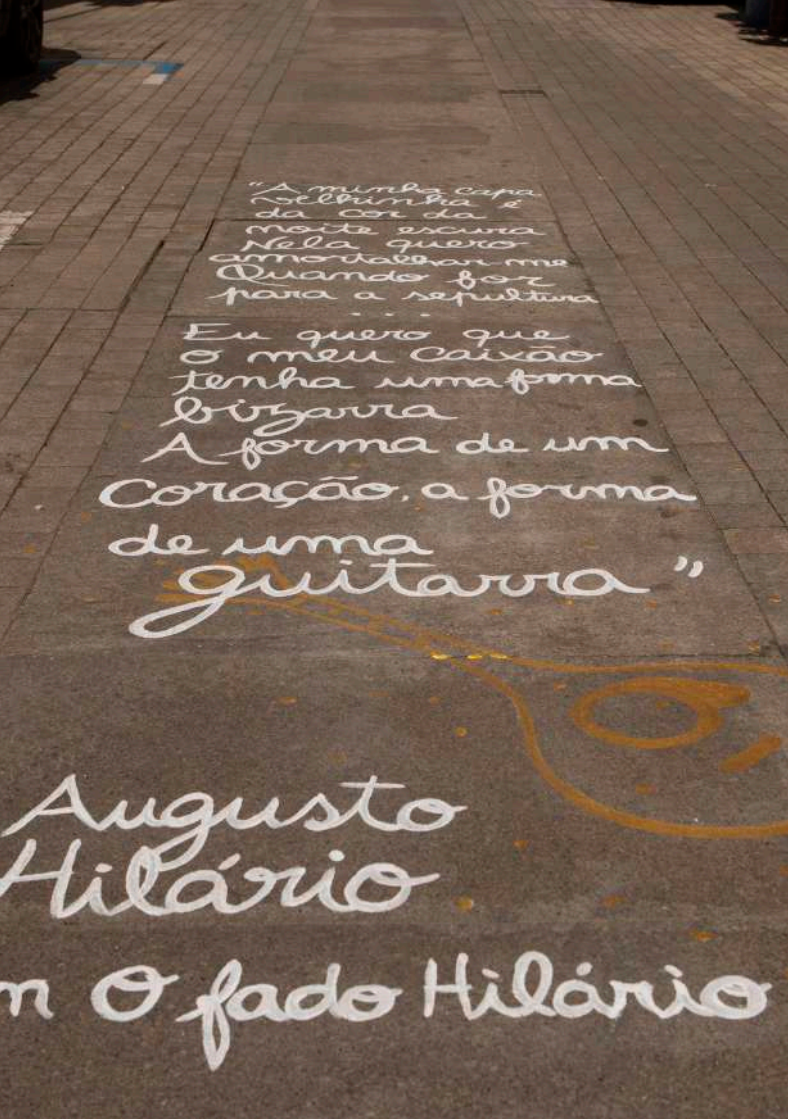 "A minha capa
velhinha é
da cor da
noite escura
Nela quero
amortalhar me
Quando for
para a sepultura
...
Eu quero que
o meu caixão
tenha uma forma
bizarra
A forma de um
Coração, a forma
de uma
guitarra"
Augusto
Hilário
O fado Hilário